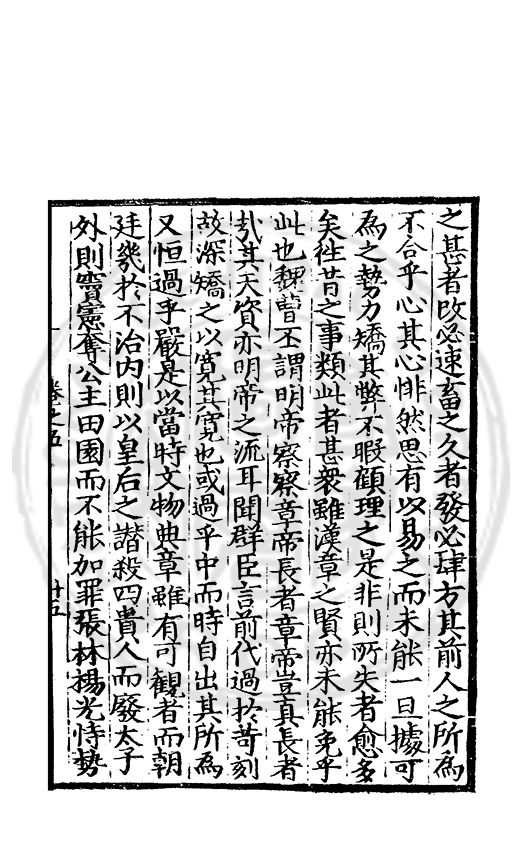 之甚者改必速畜之久者發必肆方其前人之所為
不合乎心其心悱然思有以易之而未能一旦據可
為之勢力矯其弊不暇顧理之是非則所失者愈多
矣徃昔之事類此者甚衆雖漢章之賢亦未能免乎
此也魏曹丕謂明帝察察章帝長者章帝豈真長者
㢤其天資亦明帝之流耳聞群臣言前代過於苛刻
故深矯之以寛其寛也或過乎中而時自出其所為
又恒過乎嚴是以當時文物典章雖有可觀者而朝
廷幾於不治内則以皇后之譖殺四貴人而廢太子
外則竇憲奪公主田園而不能加罪張林楊光恃勢
卷之五
十五